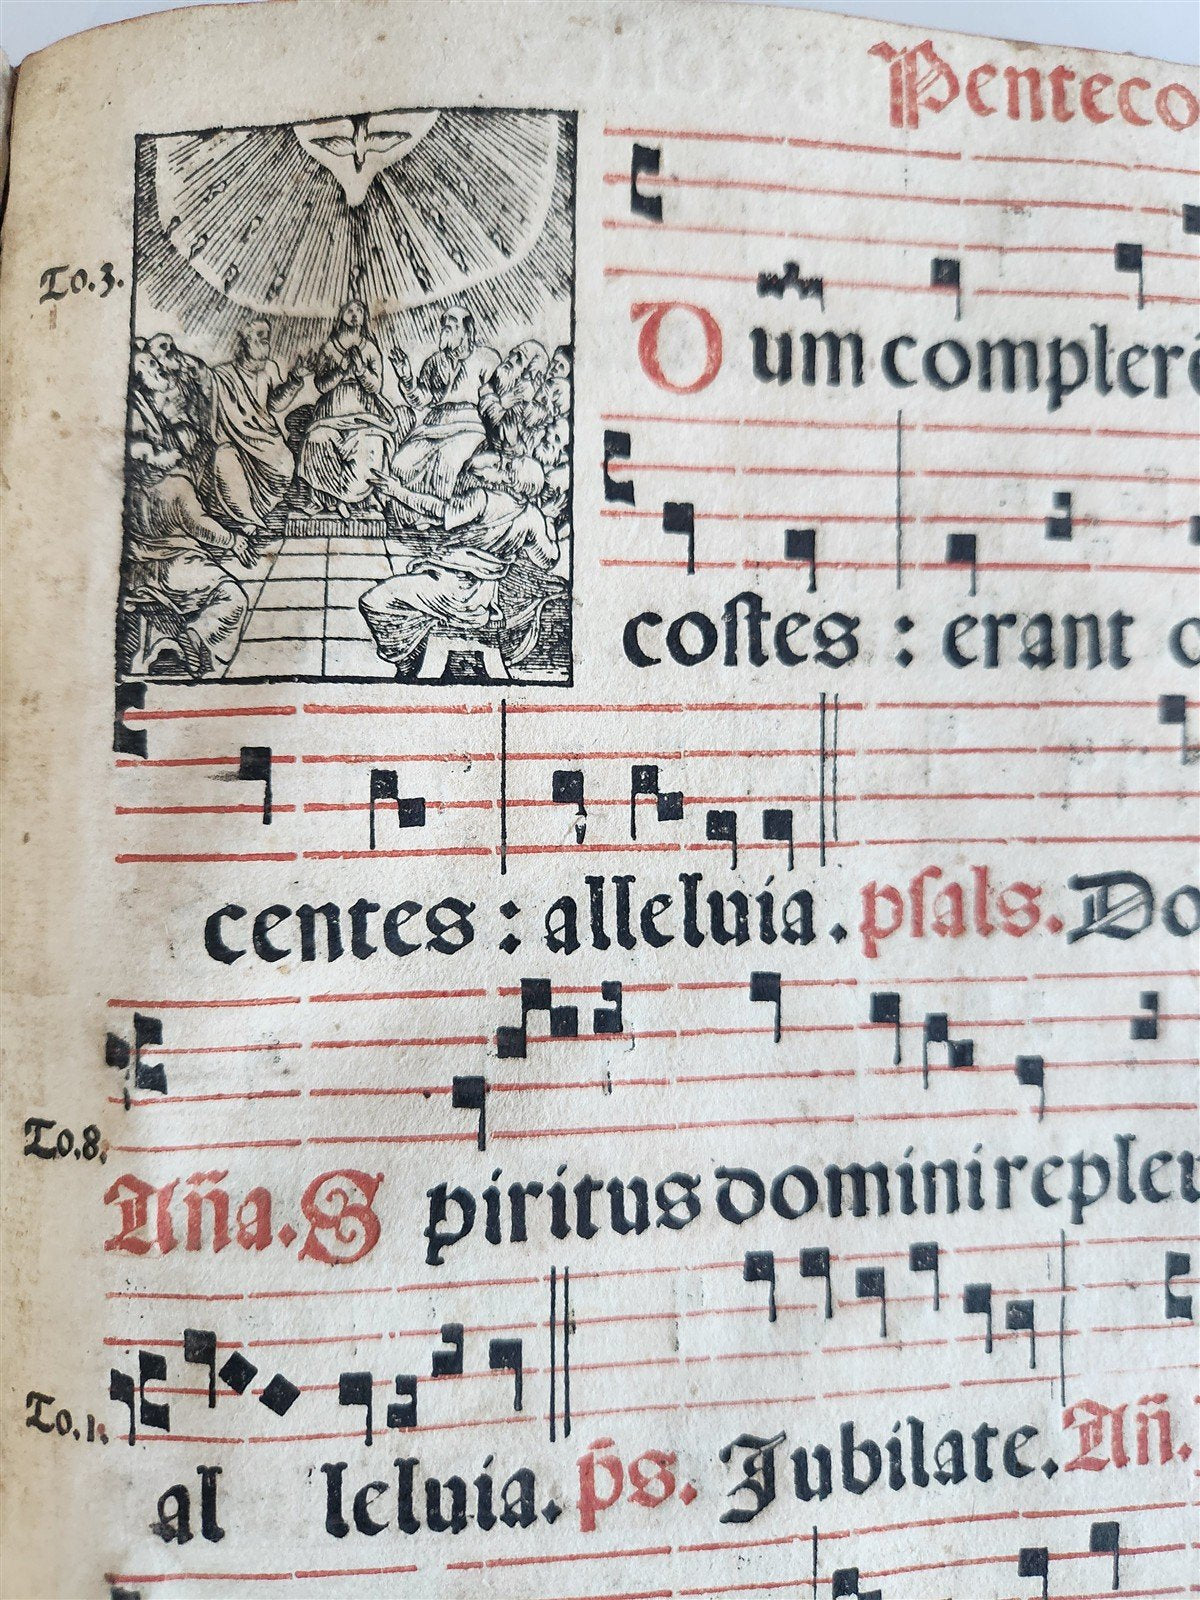 Penteco
To.3.
Dum complerē
coſtes : erant o
centes : alleluia. pſals. Do
To.8.
Aña. Spiritus domini repleu
To.1.
al leluia. p̄s. Jubilate. Añ.